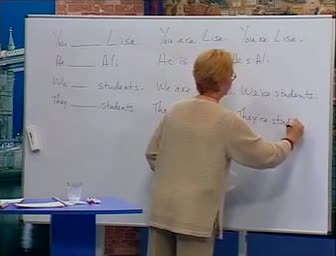 You ___ Lisa You are Lisa You're Lisa.
He ___ Ali He is Ali.
We ___ students. We are We're students.
They ___ students. They're stud